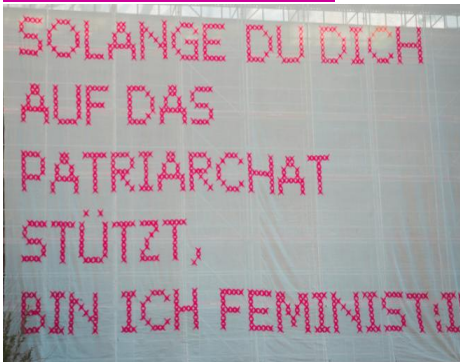 SOLANGE DU DICH
AUF DAS
PATRIARCHAT
STÜTZT,
BIN ICH FEMINIST:I